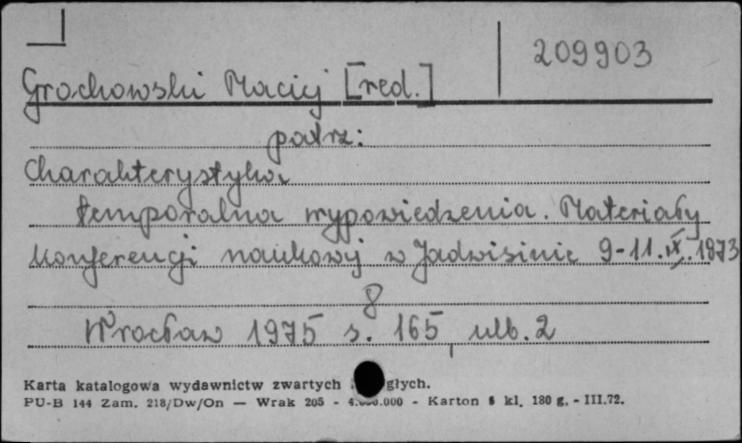 209903
Grochowski Maciej [red.]
patrz:
Charakterystyka
temporalna wypowiedzenia. Materiały
konferencji naukowej w Jadwisinie 9-11.IX.1973
8
Wrocław 1975 s. 165, ulb. 2
Karta katalogowa wydawnictw zwartych głych.
PU-B 144 Zam. 218/Dw/On — Wrak 205 - .000 - Karton kl. 180 g. - III.72.